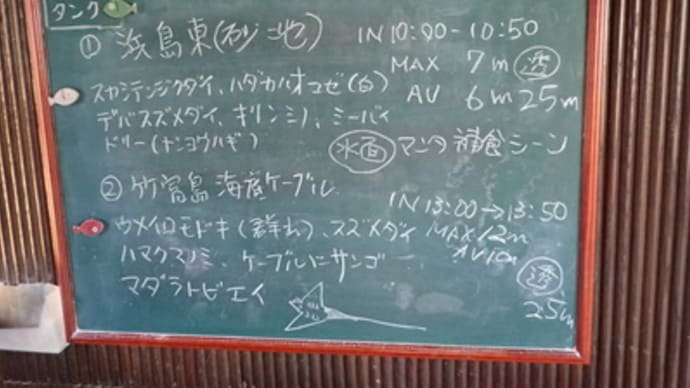 タンク
① 浜島東(砂地) IN 10:00-10:50
MAX 7m 透
スカシテンジクダイ、ハダカハオコゼ(白) AV 6m 25m
デバスズメダイ、ギリンミノ、ミーバイ
ドリー(ナンヨウハギ) 水面 マンタ捕食シーン
② 竹富島 海底ケーブル IN 13:00→13:50
ウメイロモドキ(群れ)、スズメダイ MAX 12m
ハマクマノミ、ケーブルにサンゴ AV 10m
マダラトビエイ 透
25m